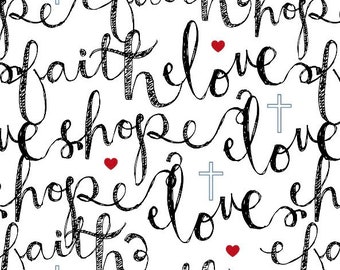 faith hope
faith love
love hope love
hope love
faith